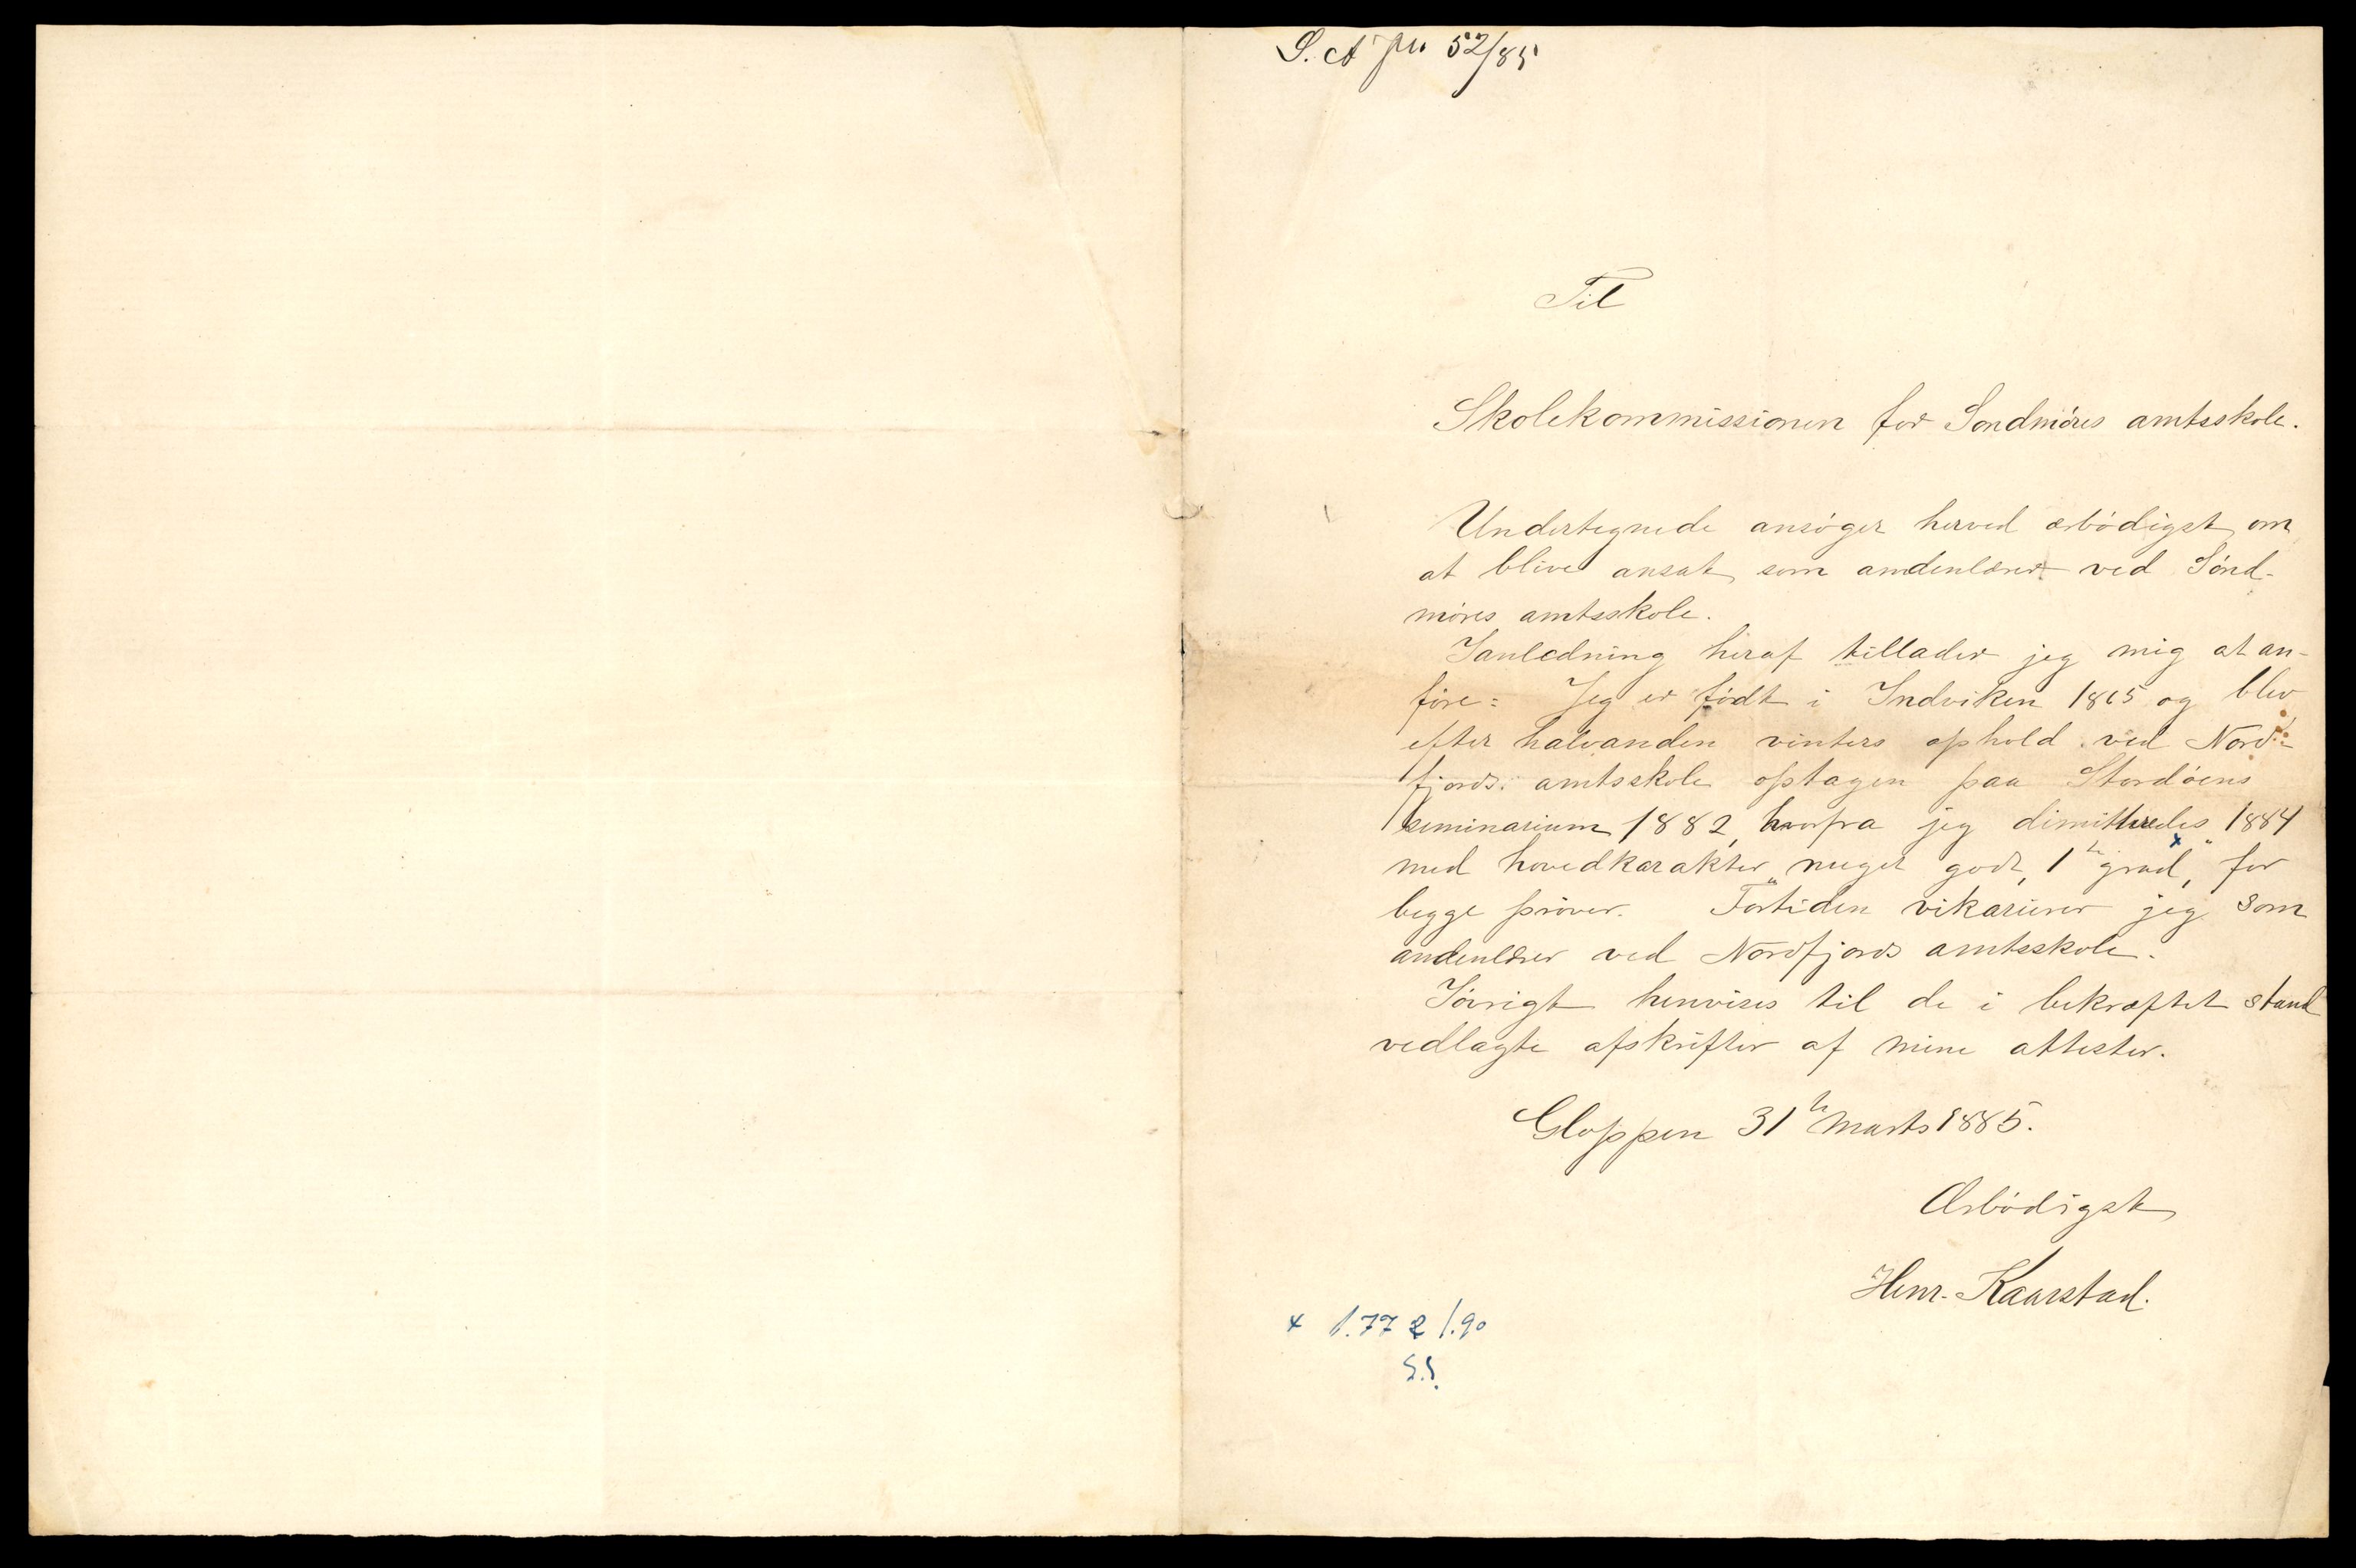 S. A jno 52/85
Til
Skolekommissionen for Sondmöres amtsskole.
Undertegnede ansöger herved ærbödigst om
at blive ansat som andenlærer ved Sönd-
möres amtsskole.
Ianledning heraf tillader jeg mig at an-
före: Jeg er födt i Indviken 1865 og blev
efter halvanden vinters ophold ved Nord-
fjords amtsskole optagen paa Stordöens
seminarium 1882, hvorfra jeg dimitteredes 1884
med hovedkarakter „meget godt, 1ste grad", x for
begge pröver. Fortiden vikarierer jeg som
andenlærer ved Nordfjords amtsskole.
Iövrigt henvises til de i bekræftet stand
vedlagte afskrifter af mine attester.
Gloppen 31te Marts 1885.
Ærbödigst
Henr. Kaarstad.
x 1.77 & 1.90
S.S.